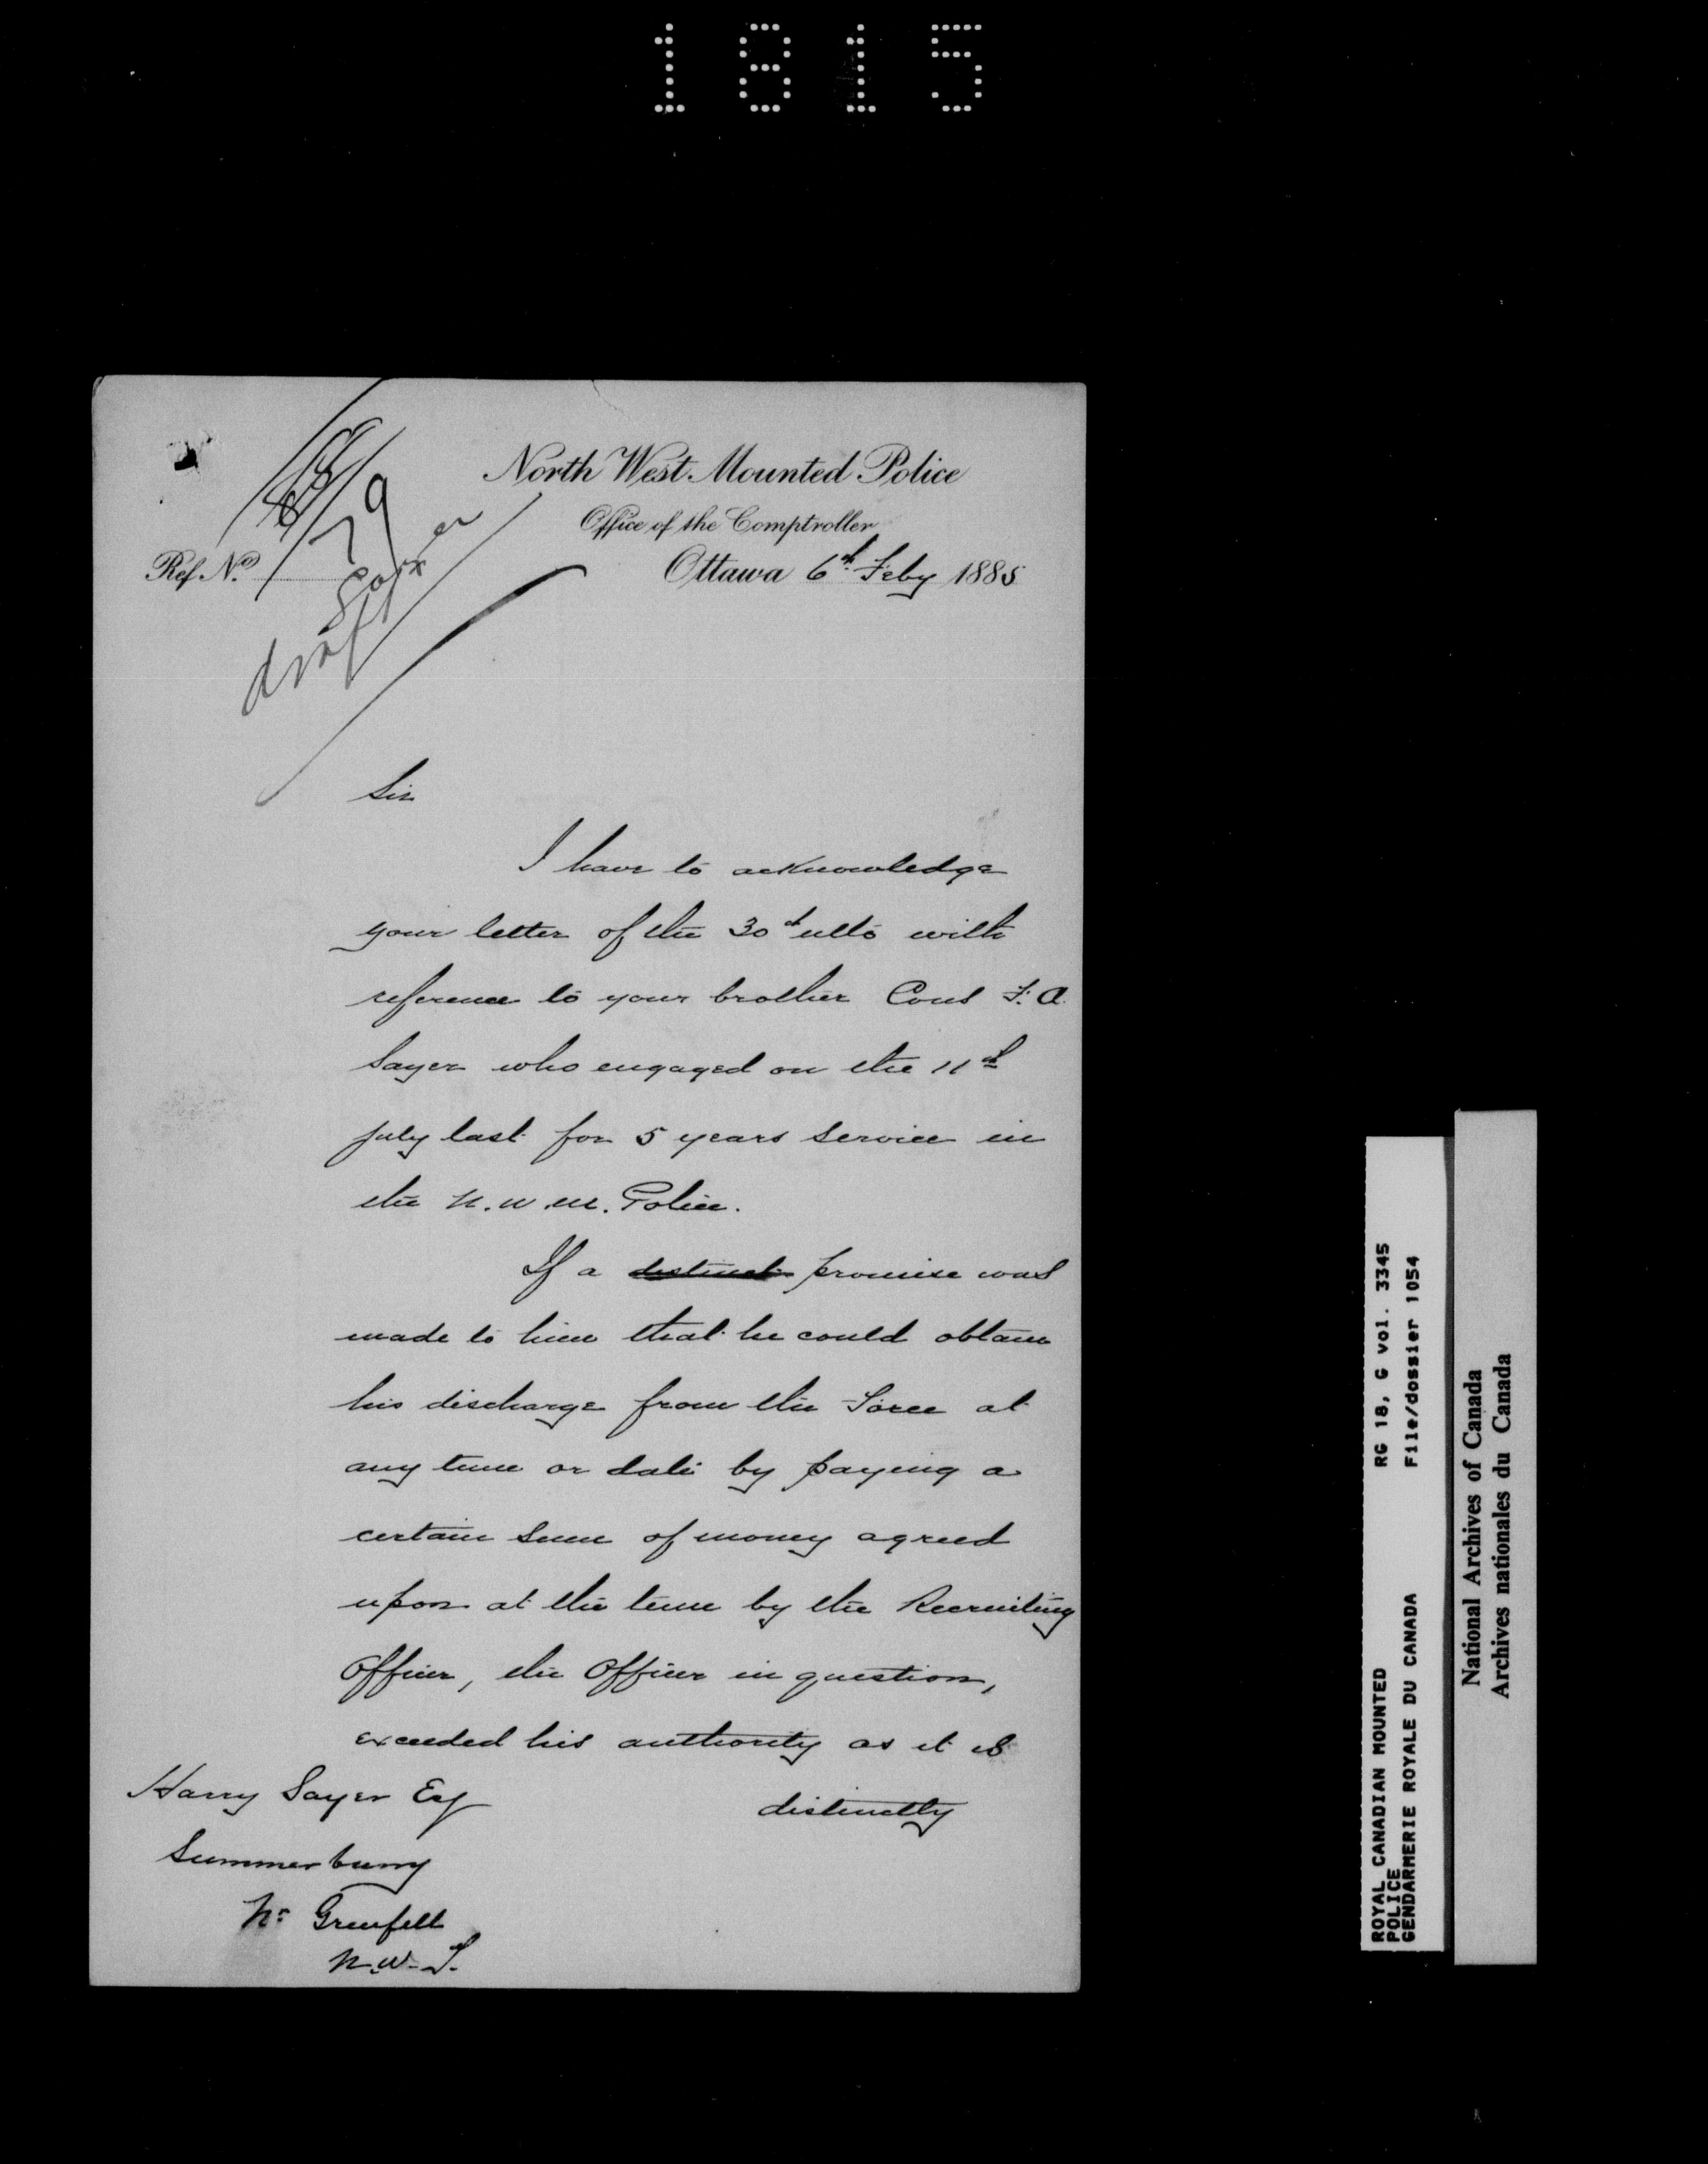 1815
North West Mounted Police
Office of the Comptroller
Ref. No.
79
draft
Ottawa 6th Feby 1885
Sir
I have to acknowledge
your letter of the 30th ulto with
reference to your brother Const F. A.
Sayer who engaged on the 11th
July last for 5 years service in
the N. W. M. Police.
If a distinct promise was
made to him that he could obtain
his discharge from the Force at
any time or date by paying a
certain sum of money agreed
upon at the time by the Recruiting
Officer, the Officer in question,
exceeded his authority as it is
distinctly
Harry Sayer Esq
Summerburry
Nr Grenfell
N.W.T.
ROYAL CANADIAN MOUNTED RG 18, G vol. 3345
POLICE
GENDARMERIE ROYALE DU CANADA File/dossier 1054
National Archives of Canada
Archives nationales du Canada